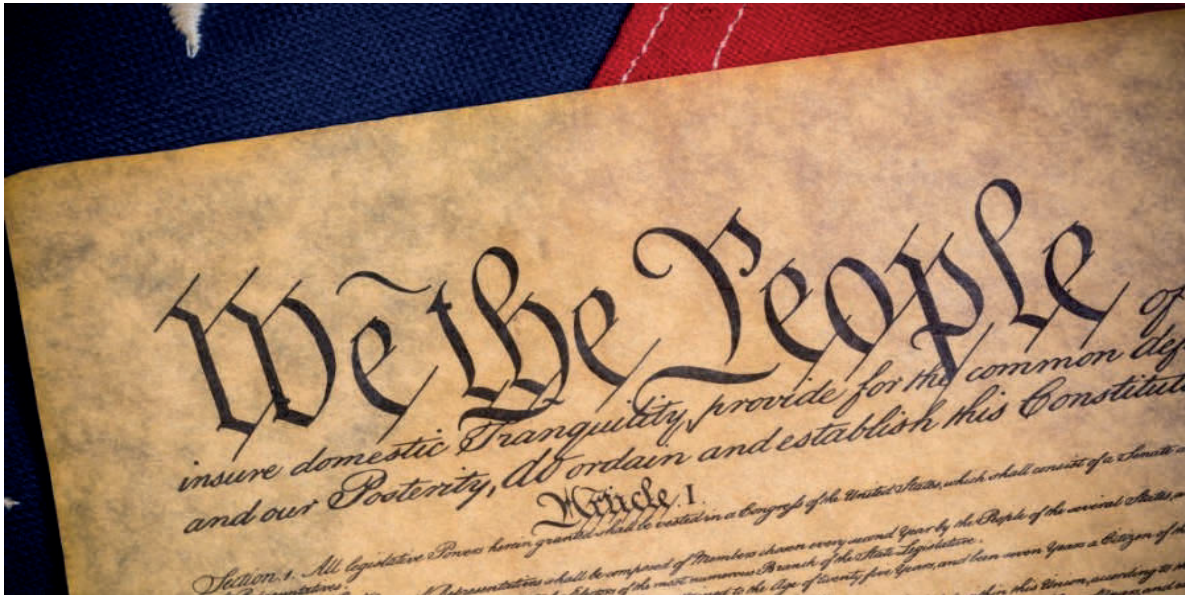 We the People of
insure domestic Tranquility, provide for the common def
and our Posterity, do ordain and establish this Constitut
Article. I.
Section. 1. All legislative Powers herein granted shall be vested in a Congress of the United States, which shall consist of a Senate
Representatives.
Representatives shall be composed of Members chosen every second Year by the People of the several States,
Electors of the most numerous Branch of the State Legislature.
to the Age of twenty five Years, and been seven Years a Citizen of the
within this Union, according to